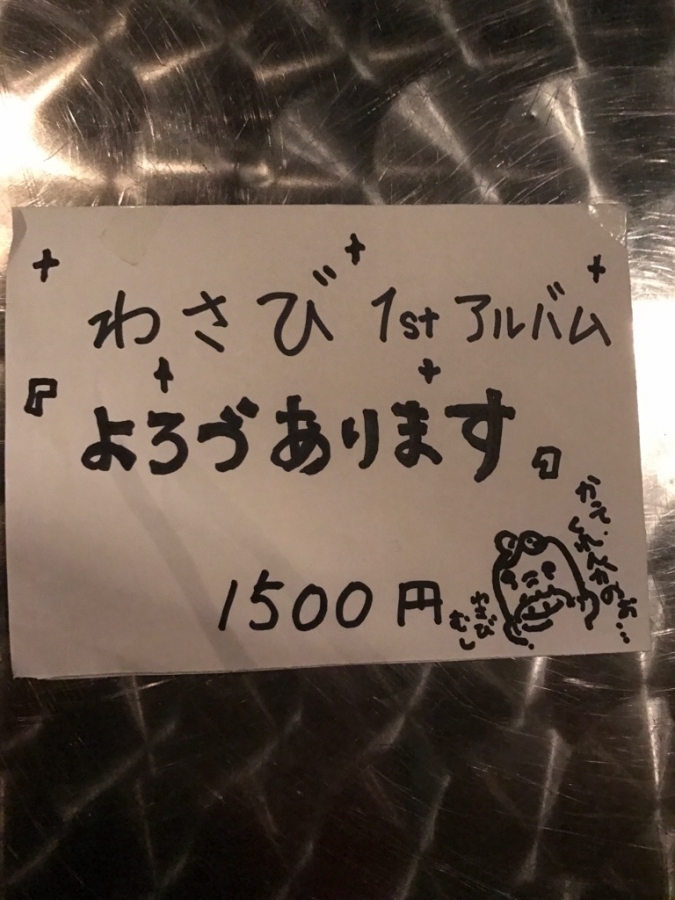 わさび 1st アルバム
『よろづあります』
1500円
わさび
むし
かって.
くれんかのぉ...